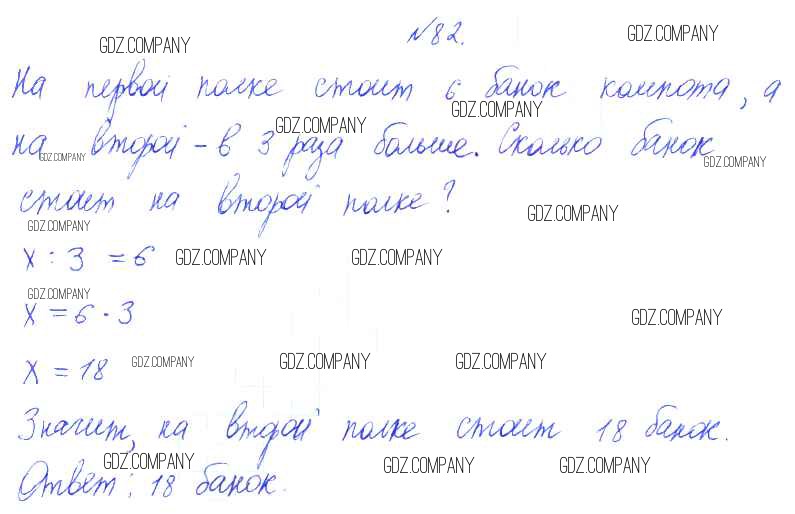 №82.
GDZ.COMPANY GDZ.COMPANY
На первой полке стоит 6 банок компота, а
GDZ.COMPANY GDZ.COMPANY
на второй - в 3 раза больше. Сколько банок
GDZ.COMPANY GDZ.COMPANY
стоит на второй полке?
GDZ.COMPANY GDZ.COMPANY
x : 3 = 6 GDZ.COMPANY GDZ.COMPANY
GDZ.COMPANY GDZ.COMPANY
x = 6 · 3
x = 18 GDZ.COMPANY GDZ.COMPANY GDZ.COMPANY
Значит, на второй полке стоит 18 банок.
GDZ.COMPANY GDZ.COMPANY GDZ.COMPANY
Ответ: 18 банок.